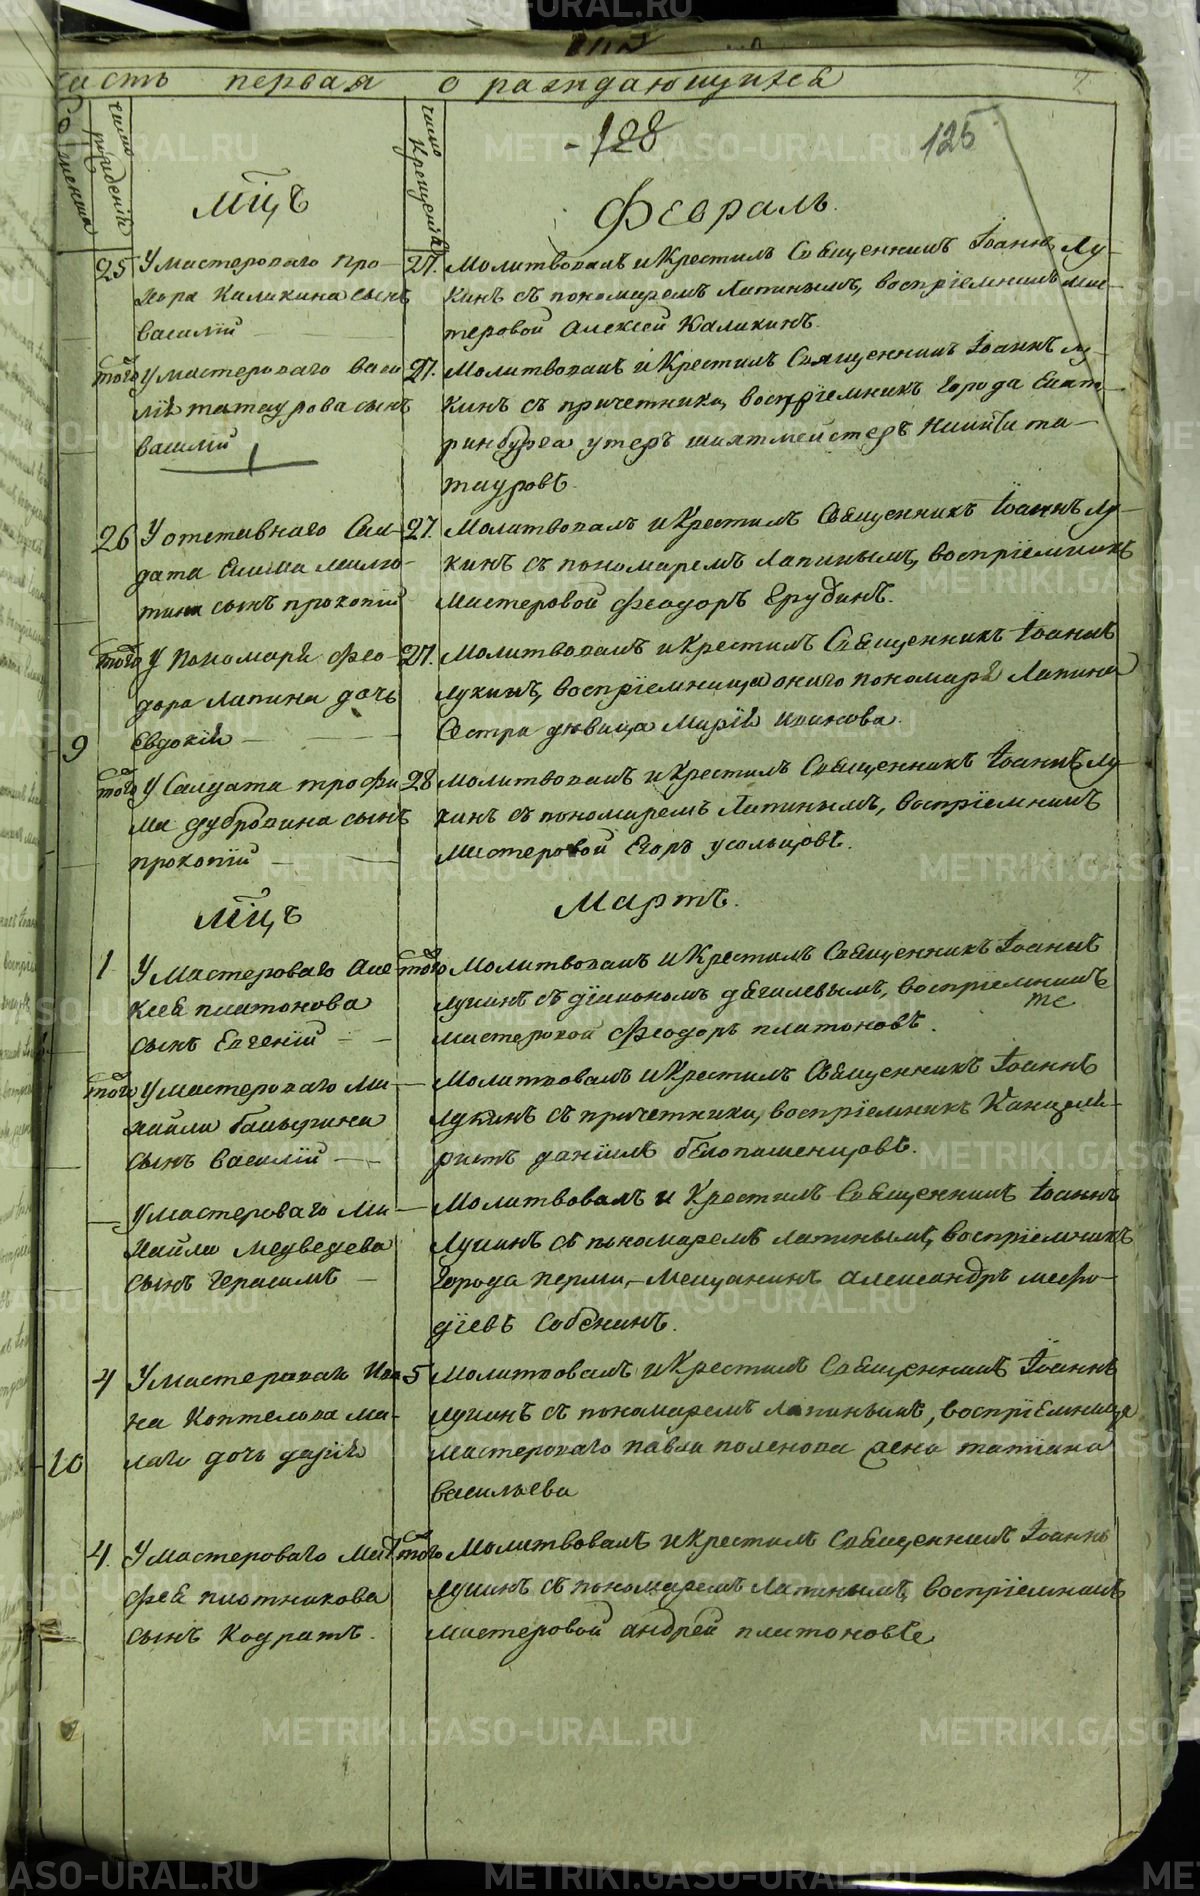 METRIKI.GASO-URAL.RU
часть первая о раждающихся
число рождений
число крещений
128
125
мцъ
Февраль.
25
У мастероваго Про-
хора Каликина сынъ
василий
27.
Молитвовалъ и Крестилъ Священникъ Іоаннъ Лу-
кинъ съ пономаремъ Лапинымъ, воспріемникъ мас-
теровой Алексей Каликинъ.
того
У мастероваго васи
лія татаурова сынъ
василій
27.
Молитвовалъ и Крестилъ Священникъ Іоаннъ лу-
кинъ съ причетники, воспріемникъ города Екате
ринбурга унтеръ шихтмейстеръ Никита та-
тауровъ.
26
У отставнаго Сал-
дата
сынъ прокопій
27.
Молитвовалъ и Крестилъ Священникъ Іоаннъ лу-
кинъ съ пономаремъ Лапинымъ, воспріемникъ
мастеровой Феодоръ Ерубинъ.
9
того
У пономаря Фео-
дора Лапина дочь
Евдокія
27.
Молитвовалъ и крестилъ Священникъ Іоаннъ
лукинъ, воспріемница онаго пономаря Лапина
Сестра девица Марія иванова.
того
У Салдата трофи
ма дубровина сынъ
прокопій
28
молитвовалъ и крестилъ Священникъ Іоаннъ Лу-
кинъ съ пономаремъ Лапинымъ, воспріемникъ
мастеровой Егоръ усольцовъ.
мцъ
Мартъ.
1
У мастероваго Але
ксея платонова
сынъ Евгеній
того
Молитвовалъ и Крестилъ Священникъ Іоаннъ
лукинъ съ діакономъ дягилевымъ, воспріемникъ
мастеровой Феодоръ платоновъ.
того
У мастероваго Ми-
хайла
сынъ василій
Молитвовалъ и Крестилъ Священникъ Іоаннъ
лукинъ съ причетники, воспріемникъ Канцеля-
ристъ даніилъ белопашенцовъ.
У мастероваго Ми
хайла медведева
сынъ герасимъ
Молитвовалъ и Крестилъ Священникъ Іоаннъ
Лукинъ съ пономаремъ лапинымъ, воспріемникъ
города перми, мещанинъ Александръ мефо-
діевъ Собенинъ.
10
4
У мастероваго Ива
на Коптелова ма-
лаго дочь дарія
5
молитвовалъ и Крестилъ Священникъ Іоаннъ
лукинъ съ пономаремъ Лапинымъ, воспріемница
мастероваго павла поленова жена татіана
васильева
4.
У мастероваго Мат
фея плотникова
сынъ Кодратъ.
того
Молитвовалъ и крестилъ Священникъ Іоаннъ
лукинъ съ пономаремъ Лапинымъ, воспріемникъ
мастеровой андрей платоновъ